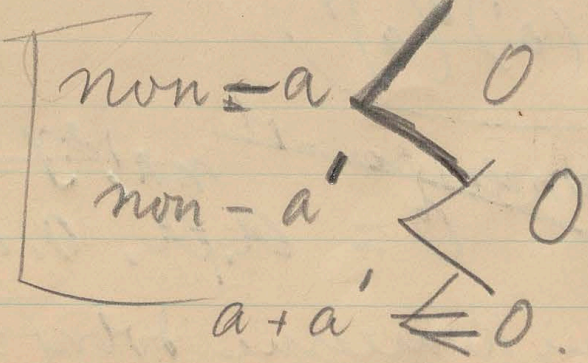 non-a < 0
non-a' < 0
a+a' ≤ 0.